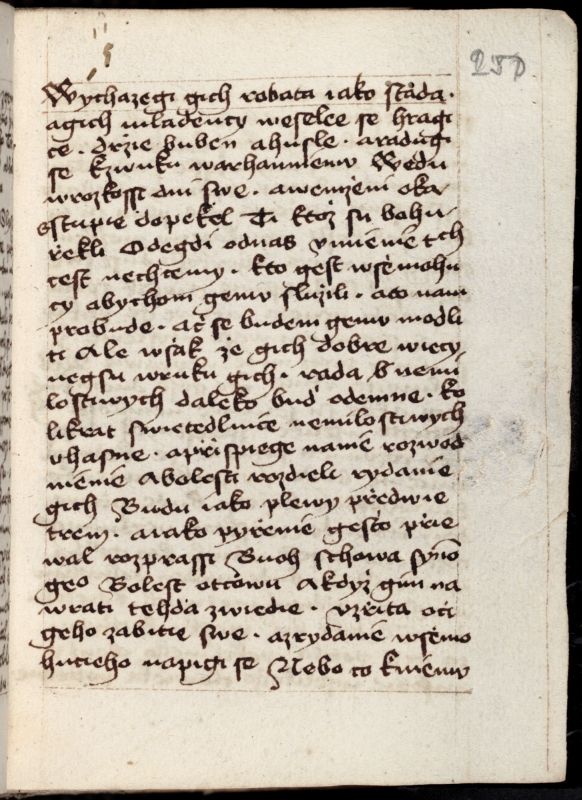 250
Wychazegi gich robata iako stada ·
agich mladency weselee se hragi
ce · drzie buben a husle · aradugi
se kzwuku warhannemu Wedu
wrozkossi dni swe · awemzieni oka
sstupie dopekel Ti ktoz su bohu
rzekli Odegdi odnas Vmienie tch
cest nechcemy · kto gest wssemohu
cy abychom gemu sluzili · aco nam
probude · ac se budem gemu modli
ti Ale wsak ze gich dobre wiecy
negsu wruku gich · rada b nemi
lostiwych daleko bud odemne · ko
likrat swietedlnice nemilostiwych
vhasne · aprzispiege namie rozwod
nienie Abolesti rozdieli rydanie
gich Budu iako plewy predwie
trem · aiako pyrzenie gesto prie
wal rozprassi Buoh schowa syno
geo Bolest otcowu Akdyz gim na
wrati tehda zwiedie · vzrita oci
geho zabitie swe · azrydanie wssemo
hucieho napigi se Nebo co kniemu